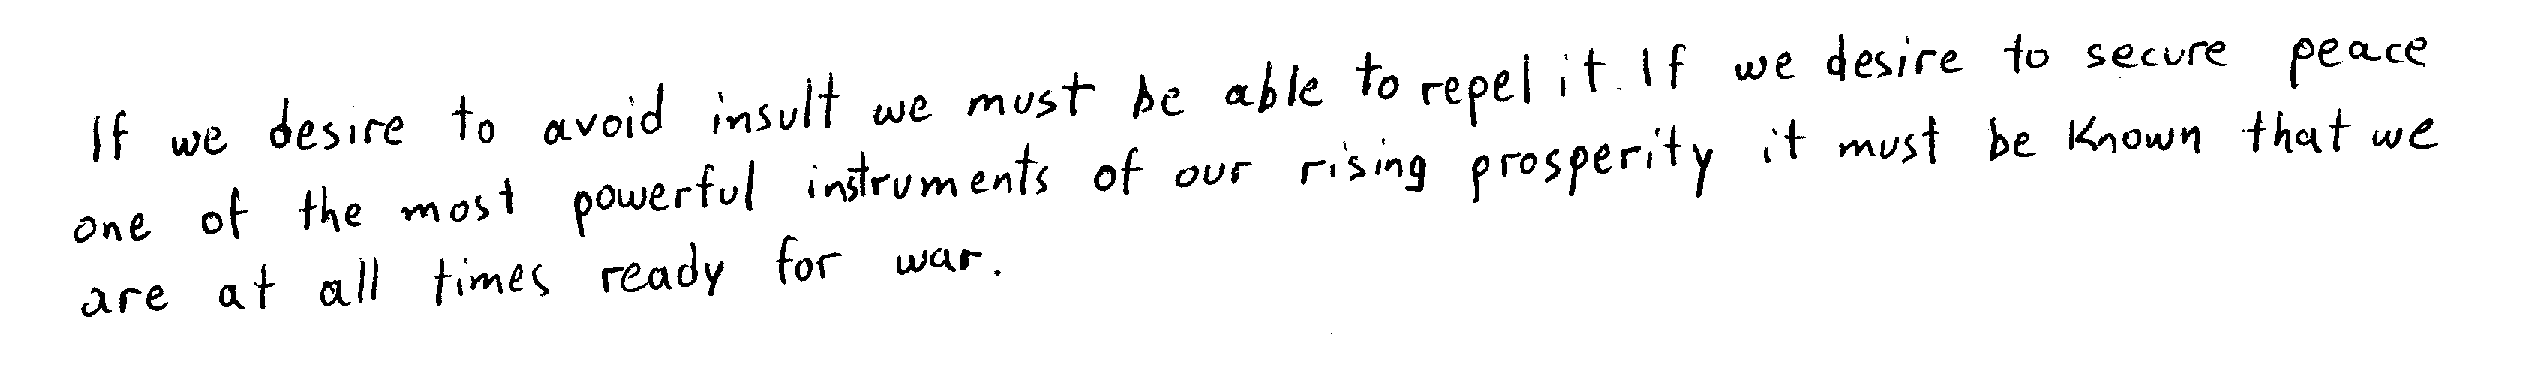 If we desire to avoid insult we must be able to repel it. If we desire to secure peace
one of the most powerful instruments of our rising prosperity it must be known that we
are at all times ready for war.